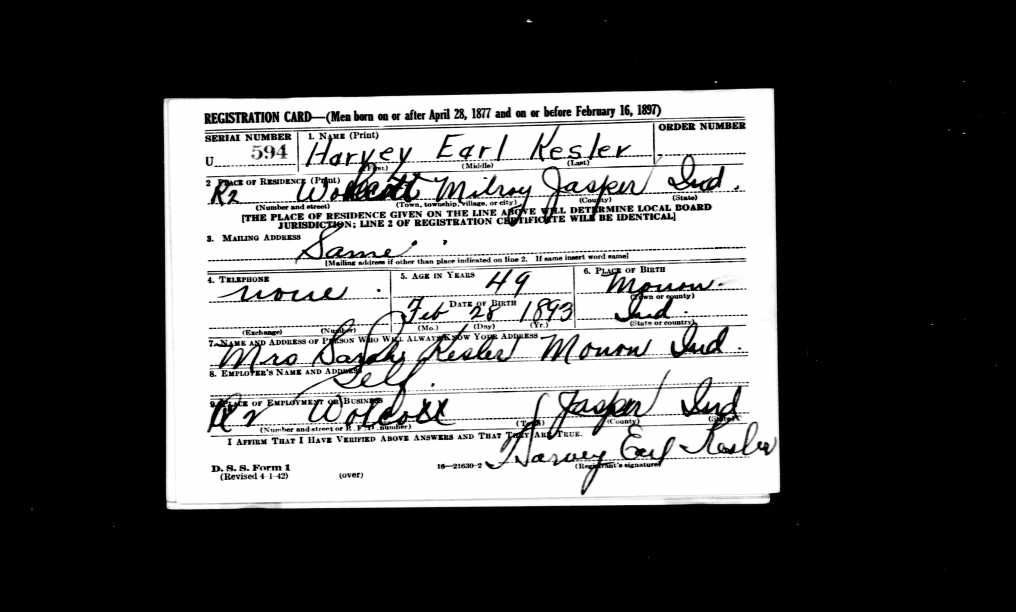 REGISTRATION CARD—(Men born on or after April 28, 1877 and on or before February 16, 1897)
SERIAL NUMBER 1. NAME (Print) ORDER NUMBER
U 594 Harvey Earl Kesler
(First) (Middle) (Last)
2. PLACE OF RESIDENCE (Print)
R2 Wolcott Milroy Jasper Ind.
(Number and street) (Town, township, village, or city) (County) (State)
[THE PLACE OF RESIDENCE GIVEN ON THE LINE ABOVE WILL DETERMINE LOCAL BOARD
JURISDICTION; LINE 2 OF REGISTRATION CERTIFICATE WILL BE IDENTICAL]
3. MAILING ADDRESS
Same
[Mailing address if other than place indicated on line 2. If same insert word same]
4. TELEPHONE 5. AGE IN YEARS 6. PLACE OF BIRTH
none 49 Monon
(Town or county)
DATE OF BIRTH
Feb 28 1893 Ind.
(Exchange) (Number) (Mo.) (Day) (Yr.) (State or country)
7. NAME AND ADDRESS OF PERSON WHO WILL ALWAYS KNOW YOUR ADDRESS
Mrs Kesler Monon Ind.
8. EMPLOYER'S NAME AND ADDRESS
Self.
9. PLACE OF EMPLOYMENT OR BUSINESS
R2 Wolcott Jasper Ind
(Number and street or R. F. D. number) (Town) (County) (State)
I AFFIRM THAT I HAVE VERIFIED ABOVE ANSWERS AND THAT THEY ARE TRUE.
Harvey Earl Kesler
D. S. S. Form 1 16—21630-2 (Registrant's signature)
(Revised 4-1-42) (over)